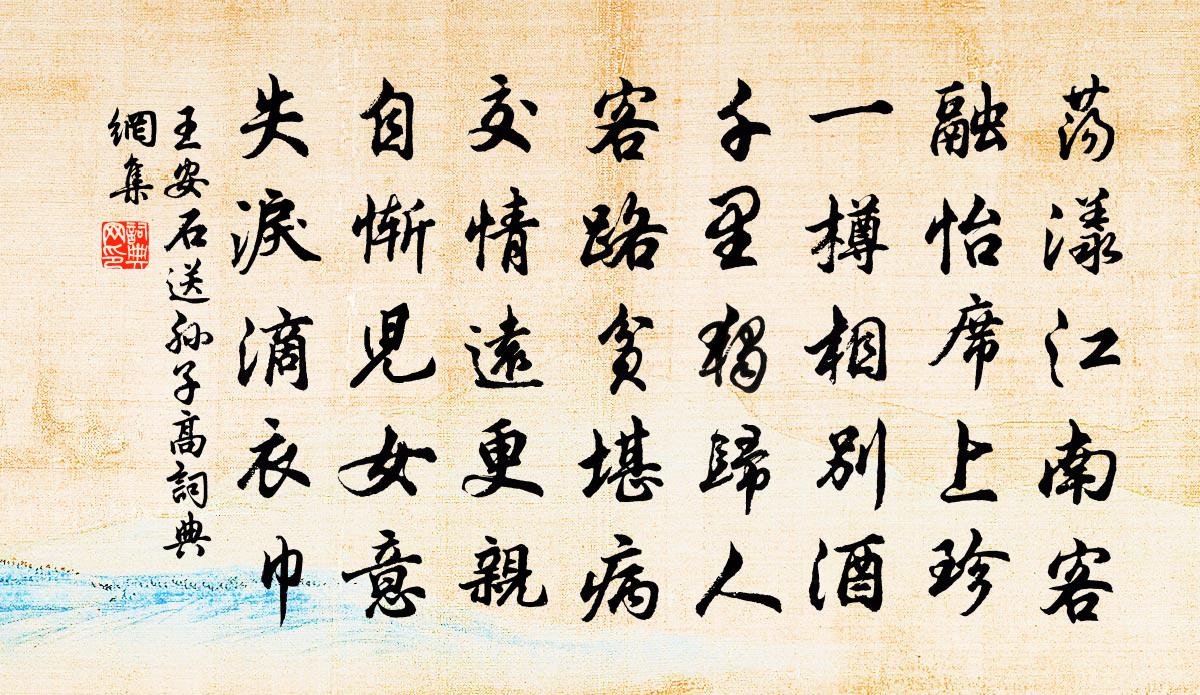 蕩漾江南客
融怡席上珍
一樽相别酒
千里獨歸人
客路貧堪病
交情遠更親
自慚兒女意
失淚滴衣巾
王安石送孫子高詞典
網集
詞典
网印